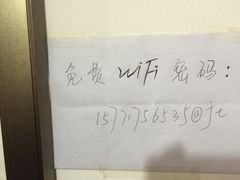 免费 WiFi 密码:
15771756535@jt